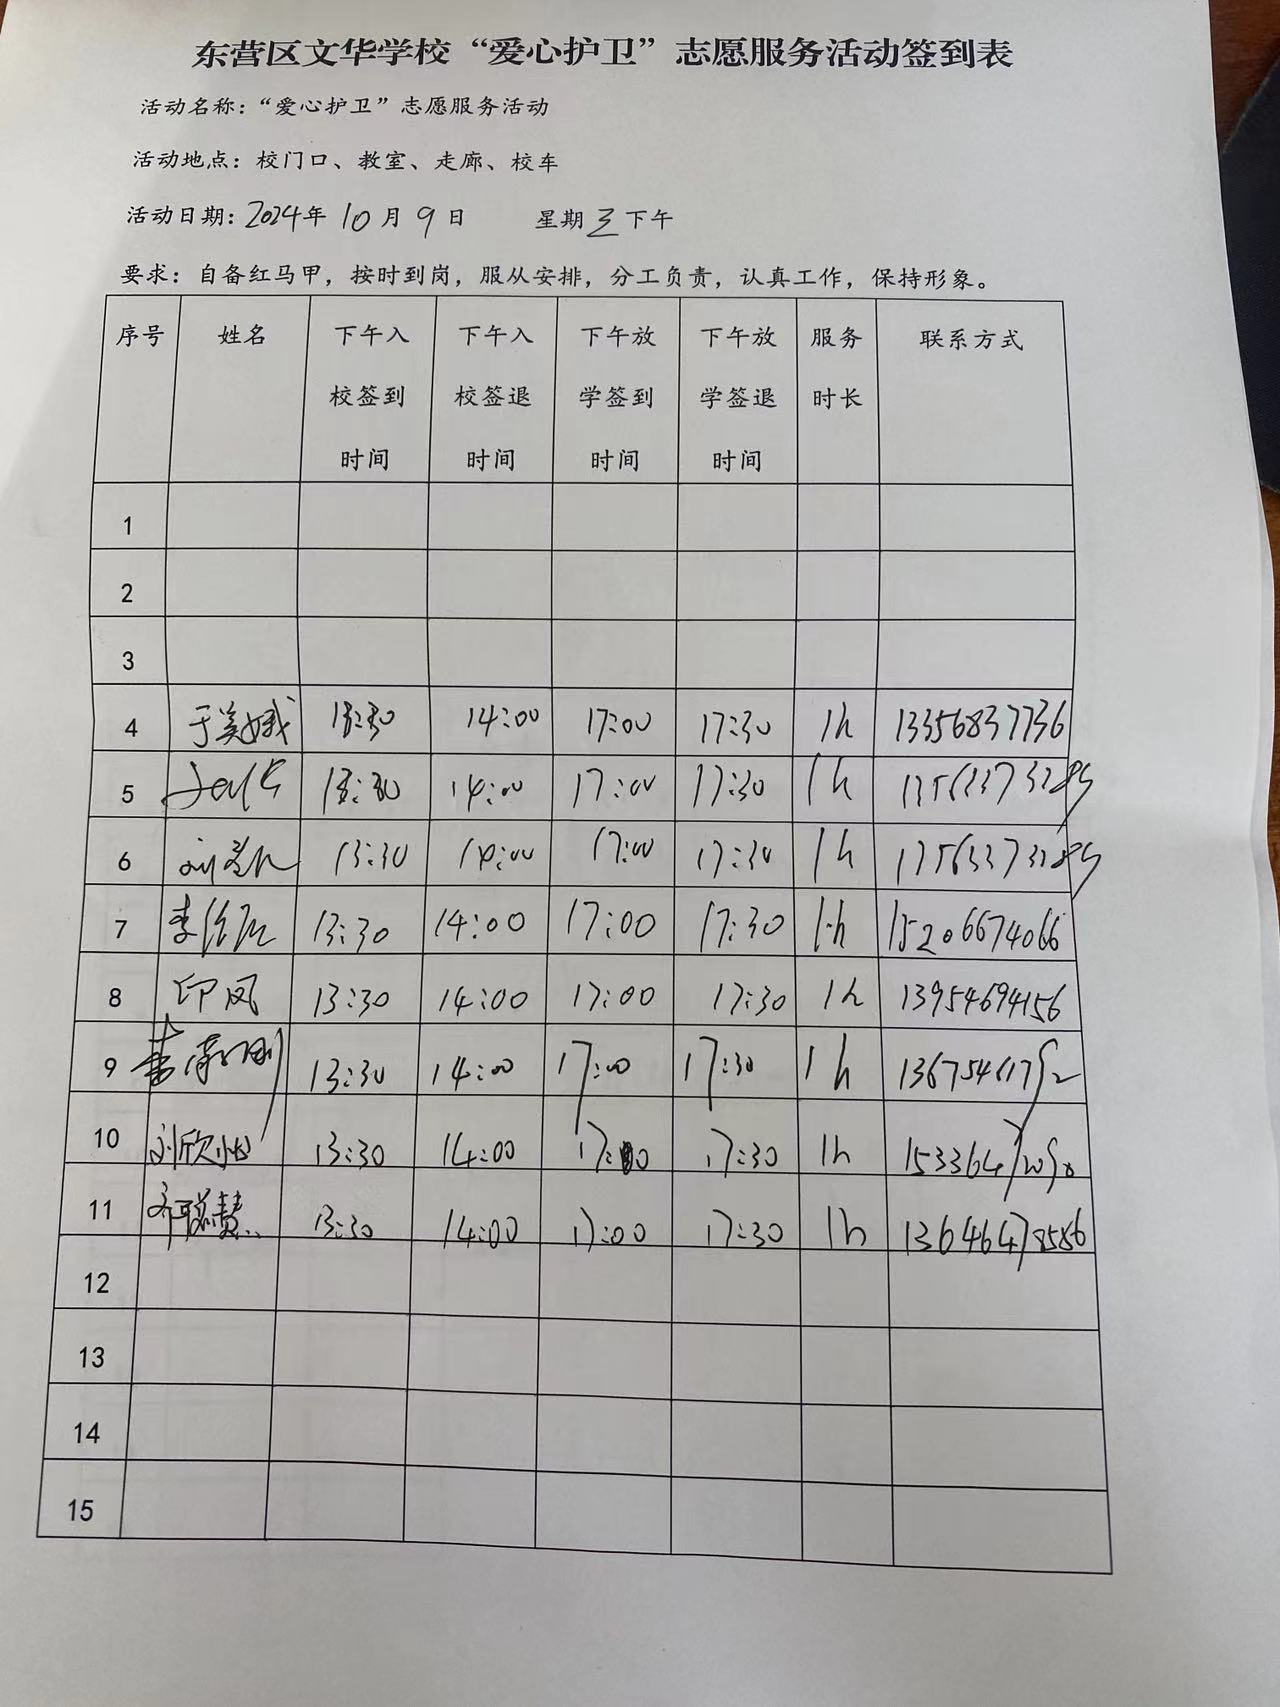 东营区文华学校“爱心护卫”志愿服务活动签到表
活动名称：“爱心护卫”志愿服务活动
活动地点：校门口、教室、走廊、校车
活动日期：2024年 10月 9日 星期三下午
要求：自备红马甲，按时到岗，服从安排，分工负责，认真工作，保持形象。
序号 姓名 下午入校签到时间 下午入校签退时间 下午放学签到时间 下午放学签退时间 服务时长 联系方式
1
2
3
4 于美娥 13:30 14:00 17:00 17:30 1h 13356837736
5 13:30 14:00 17:00 17:30 1h
6 13:30 14:00 17:00 17:30 1h
7 13:30 14:00 17:00 17:30 1h 15206674066
8 印凤 13:30 14:00 17:00 17:30 1h 13954694156
9 13:30 14:00 17:00 17:30 1h
10 13:30 14:00 17:00 17:30 1h
11 齐聪慧 13:30 14:00 17:00 17:30 1h
12
13
14
15